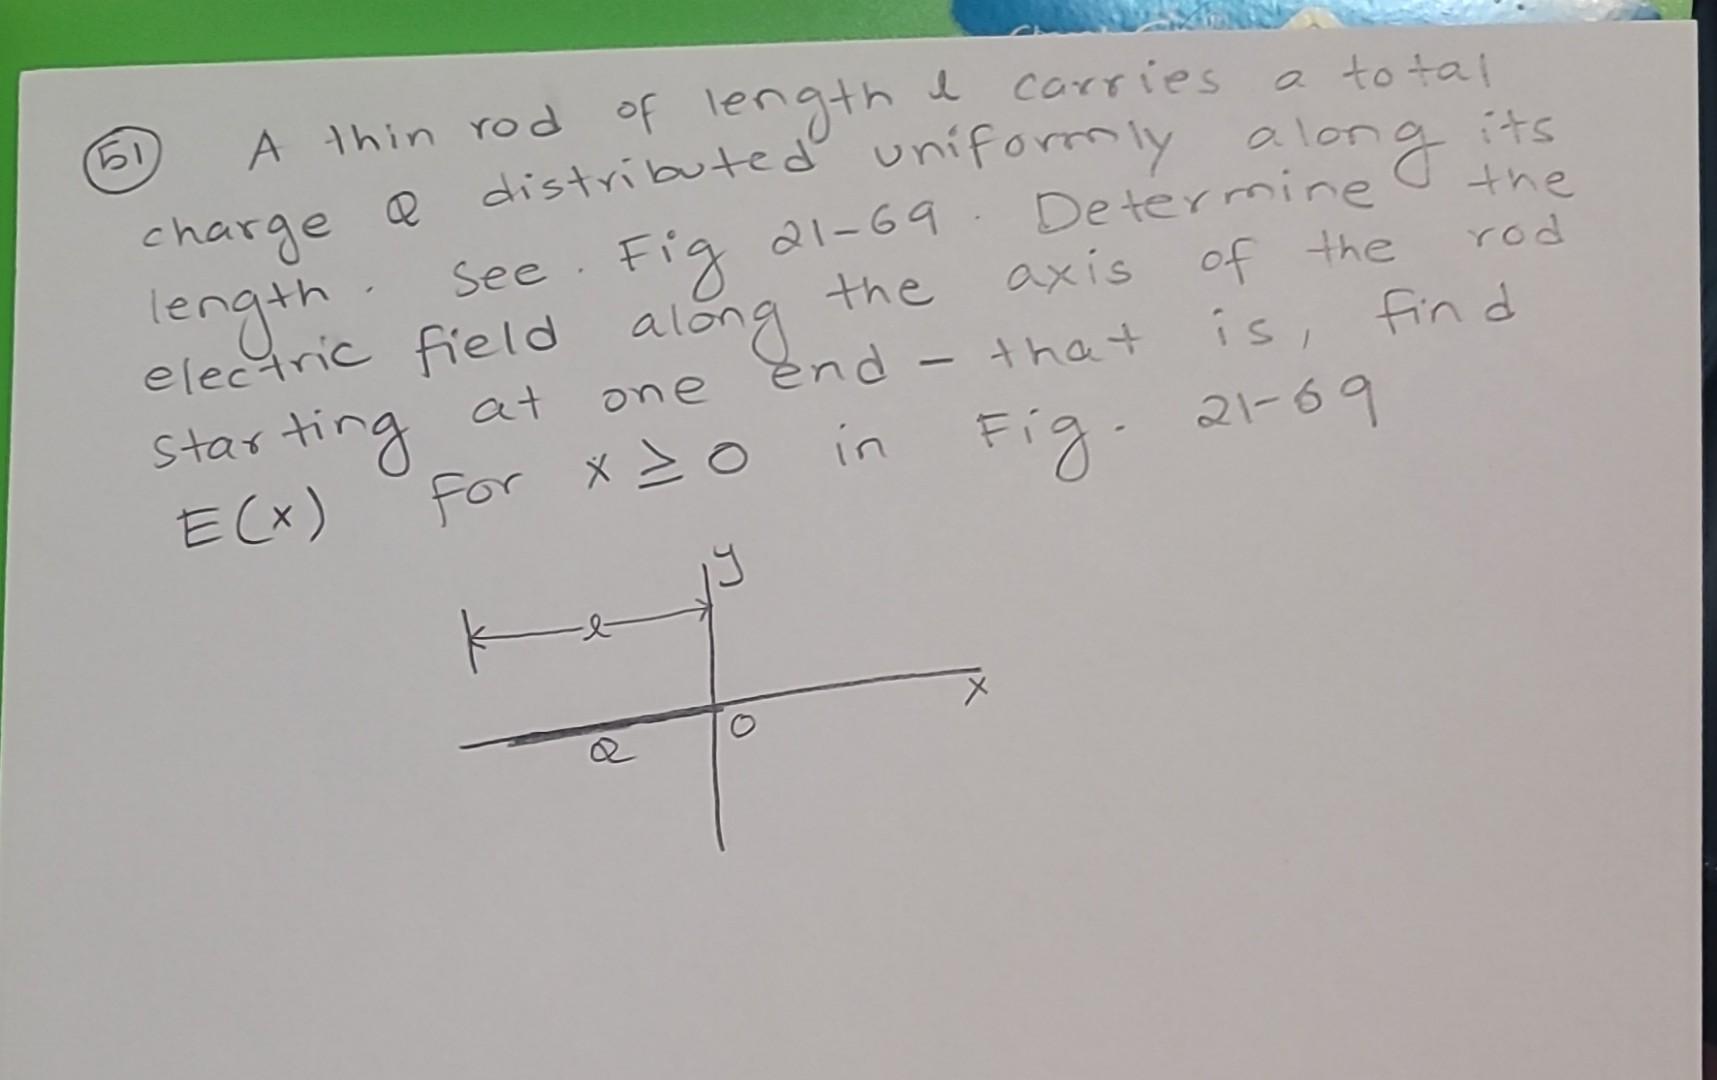 51 A thin rod of length l carries a total
charge Q distributed uniformly along its
length. See. Fig 21-69. Determine the
electric field along the axis of the rod
starting at one end - that is, find
E(x) For x ≥ 0 in Fig. 21-69
y
l
x
O
Q